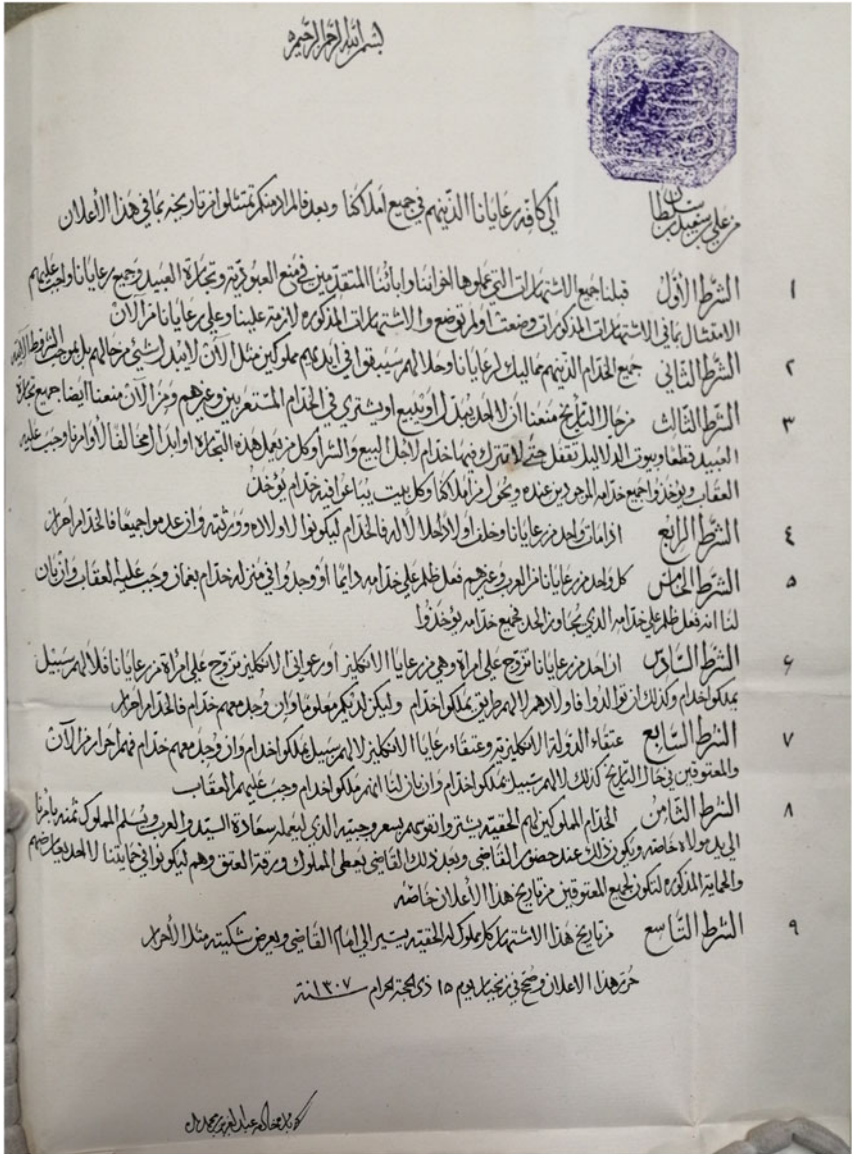 بسم الله الرحمن الرحيم
من علي بن سعيد بن سلطان
الى كافة رعايانا الذينهم في جميع املاكنا وبعد فالمراد منكم تمتثلوا من تاريخه بما في هذا الأعلان
١ الشرط الأول قبلنا جميع الاشتهارات التي عملوها اخواننا وابائنا المتقدمين في منع العبودية وتجارة العبيد وجميع رعايانا واجب عليهم
الامتثال بما في الاشتهارات المذكورات وضعت او لم توضع والاشتهارات المذكوره لازمة علينا وعلى رعايانا من الآن
٢ الشرط الثاني جميع الخدام الذينهم مماليك لرعايانا وحلالهم سيبقوا في ايديهم مملوكين مثل الآن لا يبدل شيئ من حالهم بل بموجب الشروط الآتية
٣ الشرط الثالث من حال التاريخ منعنا ان لا احد يبدل او يبيع او يشتري في الخدام المستعربين وغيرهم ومن الآن منعنا ايضا جميع تجارة
العبيد قطعا وبيوت الدلاليل تقفل حتى لا تترك فيها خدام لاجل البيع والشرا وكل من يعمل هذه التجاره او ابدا المخالفة لأوامرنا وجب عليه
العقاب ويوخذوا جميع خدامه الموجودين عنده ويحول من املاكنا وكل بيت يباعوا فيه خدام يؤخذ
٤ الشرط الرابع اذا مات واحد من رعايانا وخلف اولادا حلالا له فالخدام ليكونوا لاولاده وورثته وان عدموا جميعا فالخدام احرار
٥ الشرط الخامس كل واحد من رعايانا من العرب وغيرهم فعل ظلم على خدامه دايما او وجدوا في منزله خدام بغماز وجب عليه العقاب وان بان
لنا انه فعل ظلم على خدامه الذي يجاوز الحد فجميع خدامه يؤخذوا
٦ الشرط السادس ان احد من رعايانا تزوج على امراة وهي من رعايا الانكليز او رعوايا الانكليز تزوج على امرأة من رعايانا فلا لهم سبيل
يملكوا خدام وكذلك ان توالدوا فاولادهم لا لهم طريق يملكوا خدام وليكن لديكم معلوما وان وجد معهم خدام فالخدام احرار
٧ الشرط السابع عتقاء الدولة الانكليزية وعتقاء رعايا الانكليز لا لهم سبيل يملكوا خدام وان وجد معهم خدام فهم احرار من الآن
والمعتوقين في حال التاريخ كذلك لا لهم سبيل يملكوا خدام وان بان لنا انهم ملكوا خدام وجب عليهم العقاب
٨ الشرط الثامن الخدام المملوكين لهم الحقية يشتروا نفوسهم بسعر وجبته الذي ليعمله سعادة السيد والعرب ويسلم المملوك ثمنه بأمرنا
الى يد مولاه خاصه ويكون ذلك عند حضور القاضي وبعد ذلك القاضي يعطى المملوك ورقة العتق وهم ليكونوا في حمايتنا لا احد يعارضهم
والحماية المذكوره لتكون لجميع المعتوقين من تاريخ هذا الأعلان خاصه
٩ الشرط التاسع من تاريخ هذا الاشتهار كل مملوك له الحقية يسير الى امام القاضي ويعرض شكيته مثل الأحرار
حرر هذا الاعلان وصح في زنجبار يوم ١٥ ذي الحجة الحرام سنة ١٣٠٧